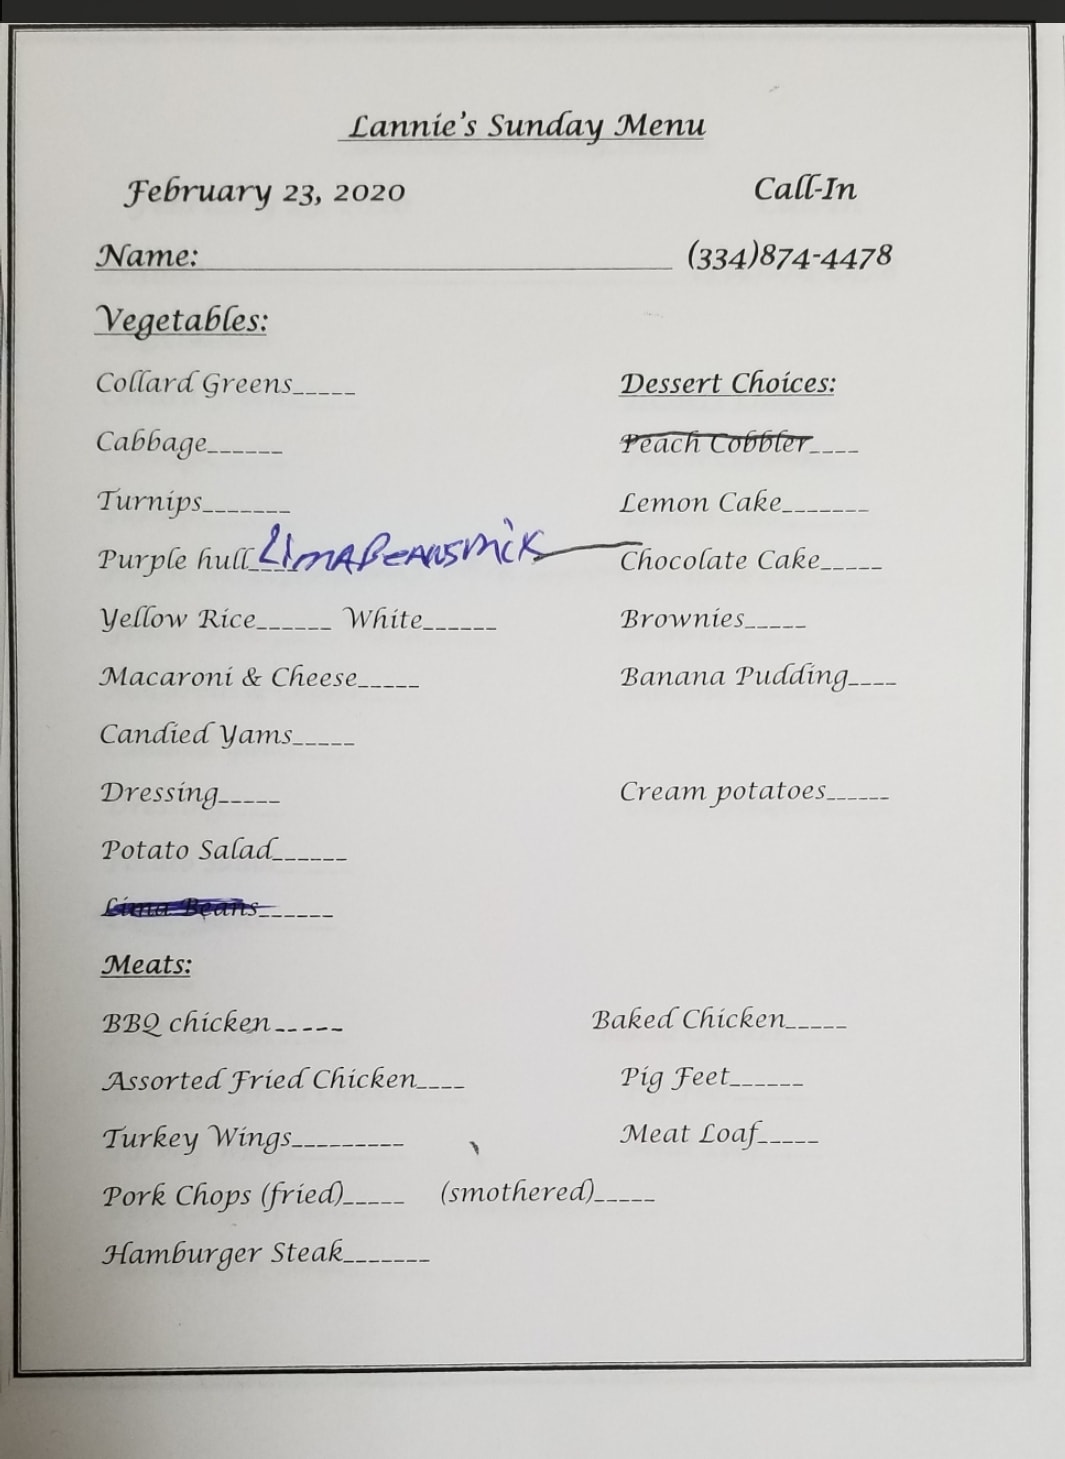 Lannie's Sunday Menu
February 23, 2020 Call-In
Name:____________________ (334)874-4478
Vegetables:
Collard Greens_____ Dessert Choices:
Cabbage______ Peach Cobbler____
Turnips_______ Lemon Cake_______
Purple hull____ LimA BeANSMiX Chocolate Cake_____
Yellow Rice______ White______ Brownies_____
Macaroni & Cheese_____ Banana Pudding____
Candied Yams_____
Dressing_____ Cream potatoes______
Potato Salad______
Lima Beans______
Meats:
BBQ chicken_____ Baked Chicken_____
Assorted Fried Chicken____ Pig Feet______
Turkey Wings_________ Meat Loaf_____
Pork Chops (fried)_____ (smothered)_____
Hamburger Steak_______